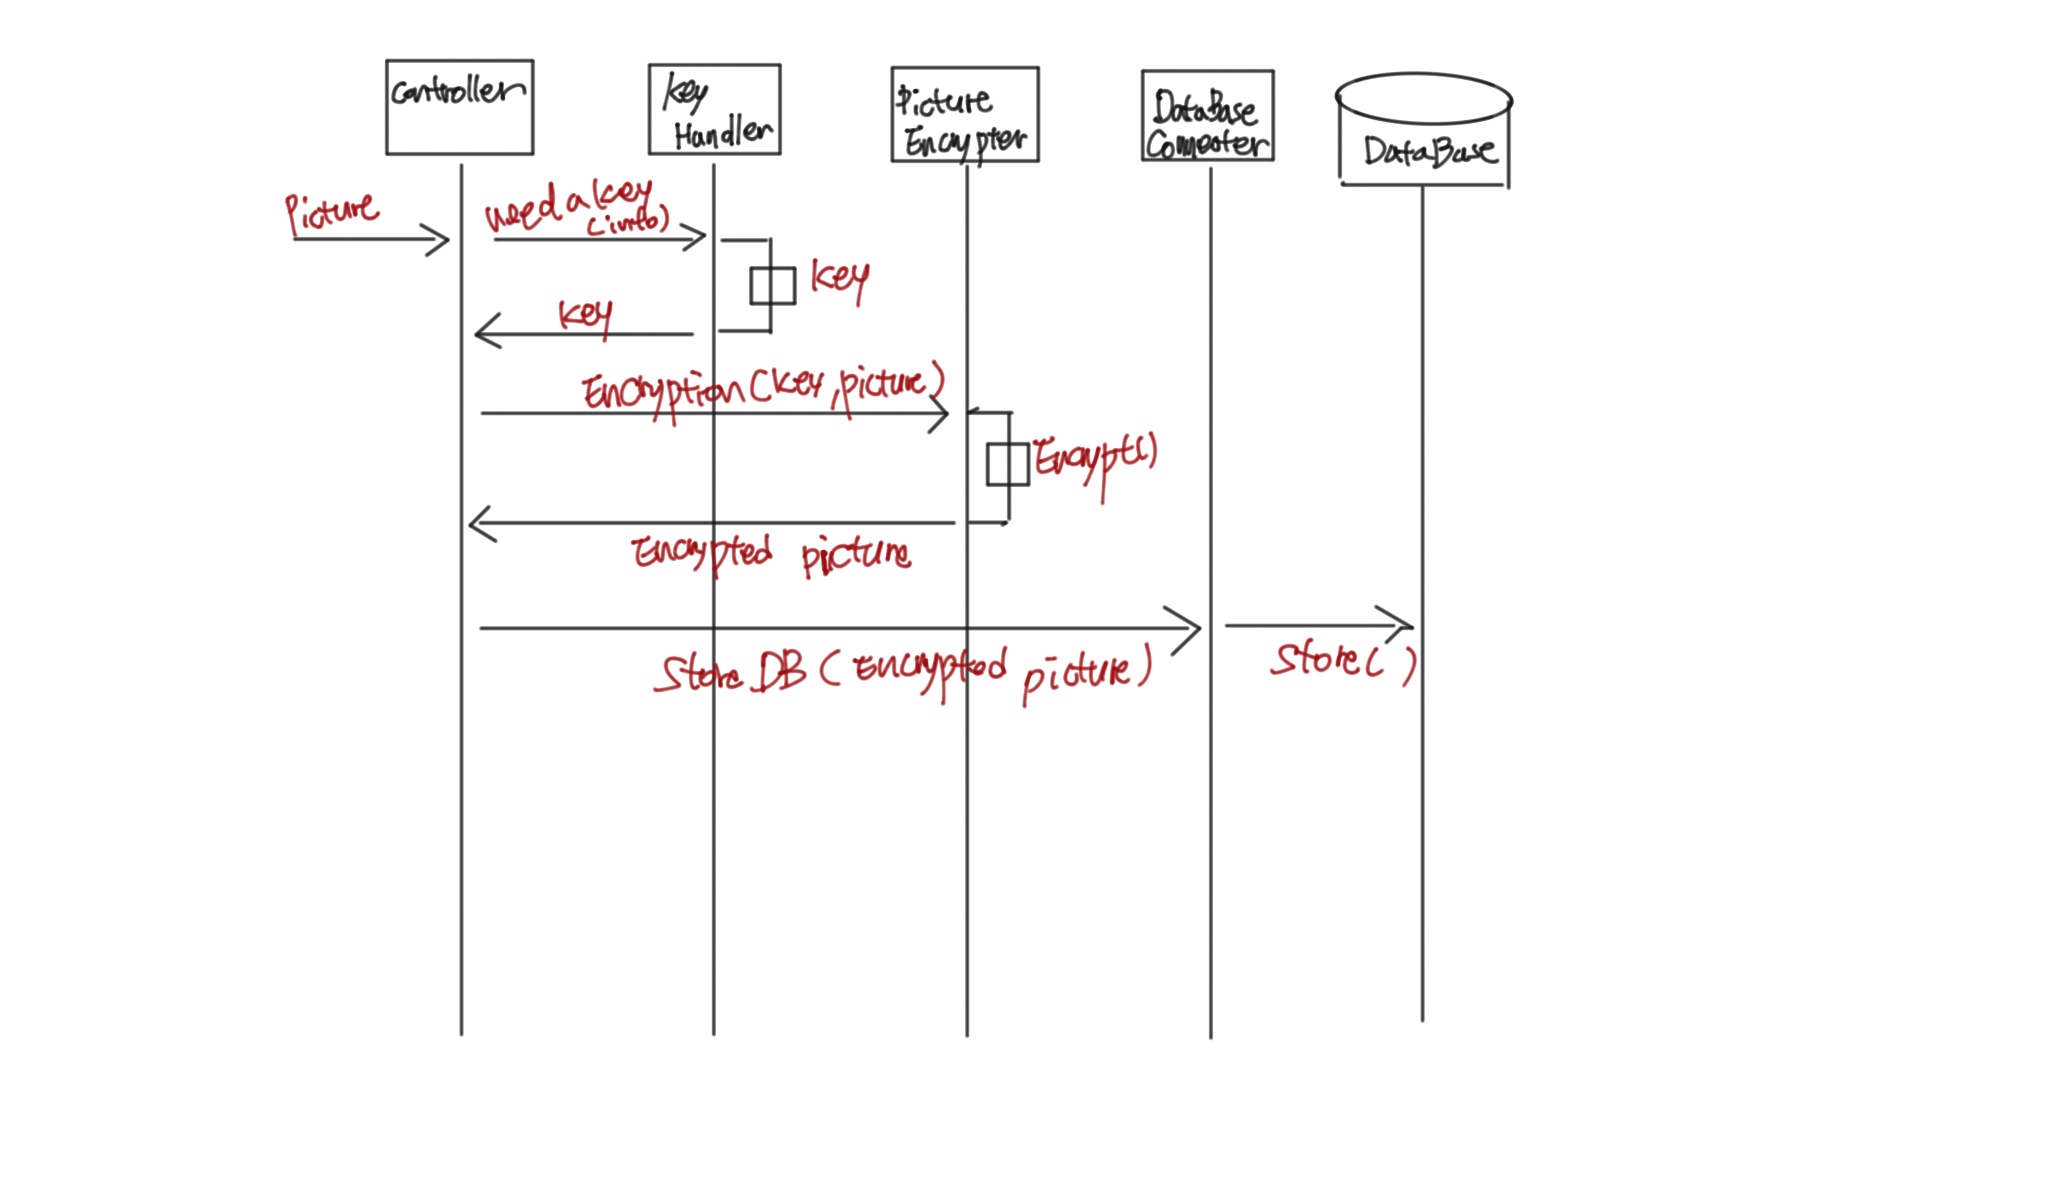 Controller
Key
Handler
Picture
Encrypter
DataBase
DataBase
Picture
need a key
(info)
key
key
Encryption (key, picture)
Encrypt()
Encrypted picture
Store DB (Encrypted picture)
Store( )